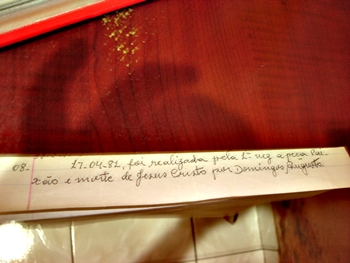 08- 17-04-81, foi realizada pela 1ª vez a peça Pai-
xão e morte de Jesus Cristo por Domingos Augusto.